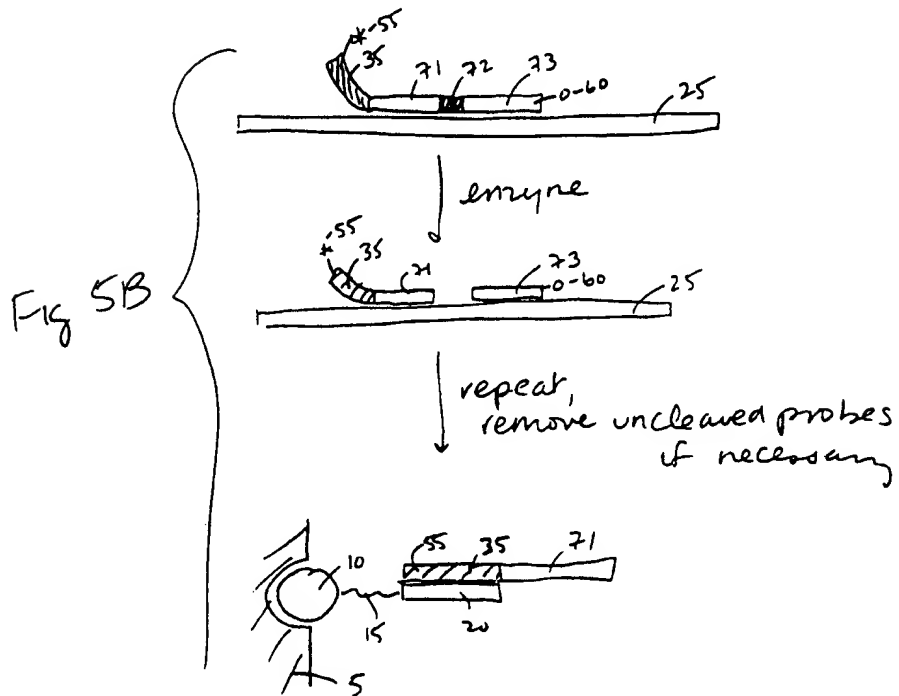 *-55
35 71 72 73
0-60 25
enzyne
*-55
35 71 73
0-60 25
Fig 5B
repeat,
remove uncleaved probes
if necessary
10 55 35 71
15 20
5